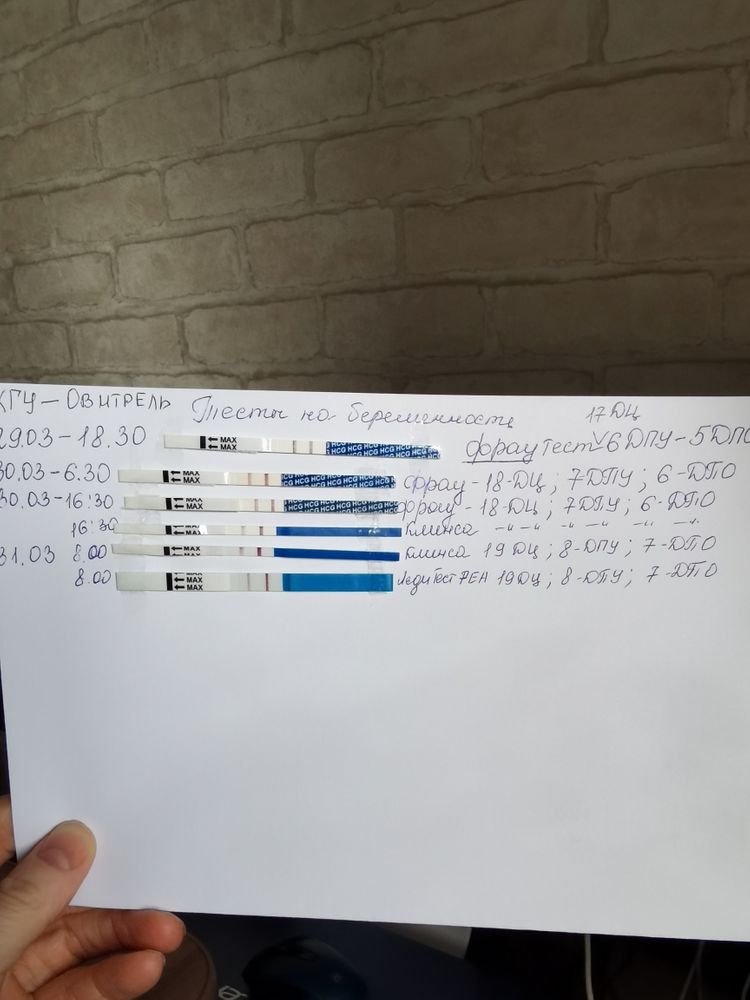 ХГЧ – ОВИТРЕЛЬ Тесты на беременность 17 ДЦ
29.03 – 18.30 MAX MAX HCG HCG HCG HCG HCG фрау тест 6 ДПУ – 5 ДПО
30.03 – 6.30 MAX MAX HCG HCG HCG HCG HCG фрау – 18 ДЦ ; 7 ДПУ ; 6 – ДПО
30.03 – 16:30 MAX MAX HCG HCG HCG HCG HCG фрау – 18 ДЦ ; 7 ДПУ ; 6 – ДПО
16:30 MAX MAX Клинса –"– –"– –"– –"–
31.03 8.00 MAX MAX Клинса 19 ДЦ ; 8 – ДПУ ; 7 – ДПО
8.00 MAX MAX ЛедиТест РЕН 19 ДЦ ; 8 – ДПУ ; 7 – ДПО